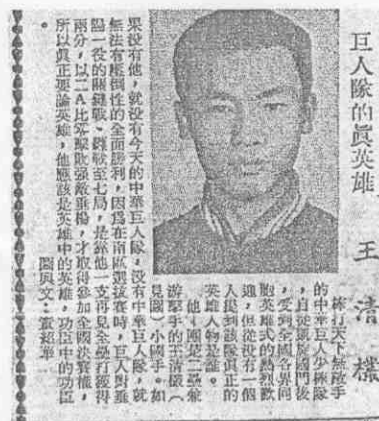 巨人隊的眞英雄 王清欉
棒打天下無敵手
的中華巨人少棒隊
,自從凱旋國門後
,受到全國各界同
胞英雄式的熱烈歡
迎,但從没有一個
人提到該隊眞正的
英雄人物是誰。
他,便是二壘兼
游擊手的王清欉(
見圖)小國手。如
果没有他,就没有今天的中華巨人隊,没有中華巨人隊,就
無法有壓倒性的全面勝利,因爲在南區選拔賽時,巨人對垂
楊一役的關鍵戰,鏖戰至七局,是靠他一支再見全壘打獲得
兩分,以二A比零擊敗强敵垂楊,才取得參加全國決賽權,
所以眞正要論英雄,他應該是英雄中的英雄,功臣中的功臣
。
圖與文:紹華